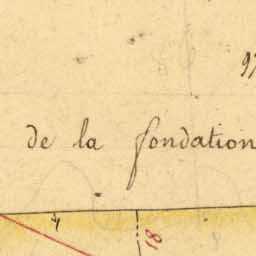 97
de la fondation
4
18